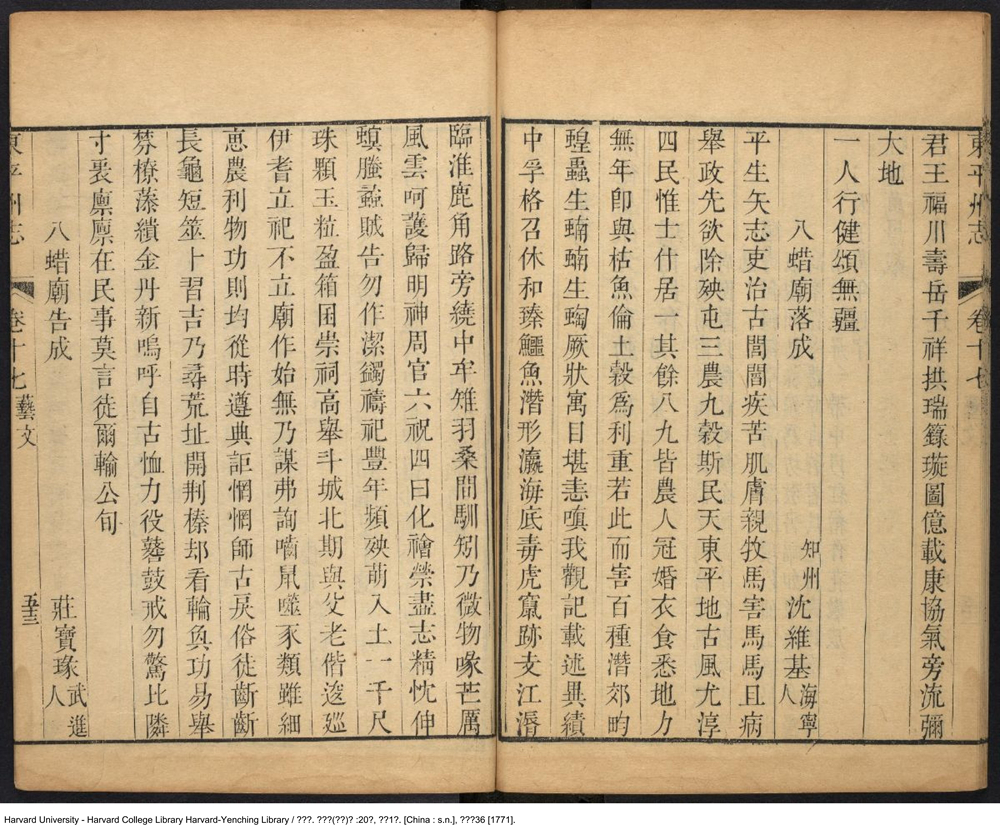 東平州志 卷十七
君王福川壽岳千祥拱瑞籙璇圖億載康協氣旁流彌
大地
一人行健頌無疆
八蜡廟落成 知州沈維基海寧人
平生矢志吏治古閭閻疾苦肌膚親牧馬害馬馬且病
舉政先欲除殃屯三農九穀斯民天東平地古風尤淳
四民惟士什居一其餘八九皆農人冠婚衣食悉地力
無年卽與枯魚倫土穀爲利重若此而害百種潛郊畇
蝗蟲生蝻蝻生蜪厥狀寓目堪恚嗔我觀記載述異績
中孚格召休和臻鱷魚潛形瀛海底毒虎竄跡支江漘
臨淮鹿角路旁繞中牟雉羽桑間馴矧乃微物喙芒厲
風雲呵護歸明神周官六祝四曰化禬禜盡志精忱伸
螟螣蟊賊告勿作潔蠲禱祀豐年頻殃萌入土一千尺
珠顆玉粒盈箱囷崇祠高舉斗城北期與父老偕逡巡
伊耆立祀不立廟作始無乃謀弗詢嚙鼠噬豕類雖細
惠農利物功則均從時遵典詎惘惘師古戾俗徒齗齗
長龜短筮卜習吉乃尋荒址開荆榛却看輪奐功易舉
棼橑藻繢金丹新嗚呼自古恤力役鼛鼓戒勿驚比隣
寸裹廪廪在民事莫言徒爾輸公旬
八蜡廟告成 莊寶瑑武進人
東平州志 卷十七 藝文 五三